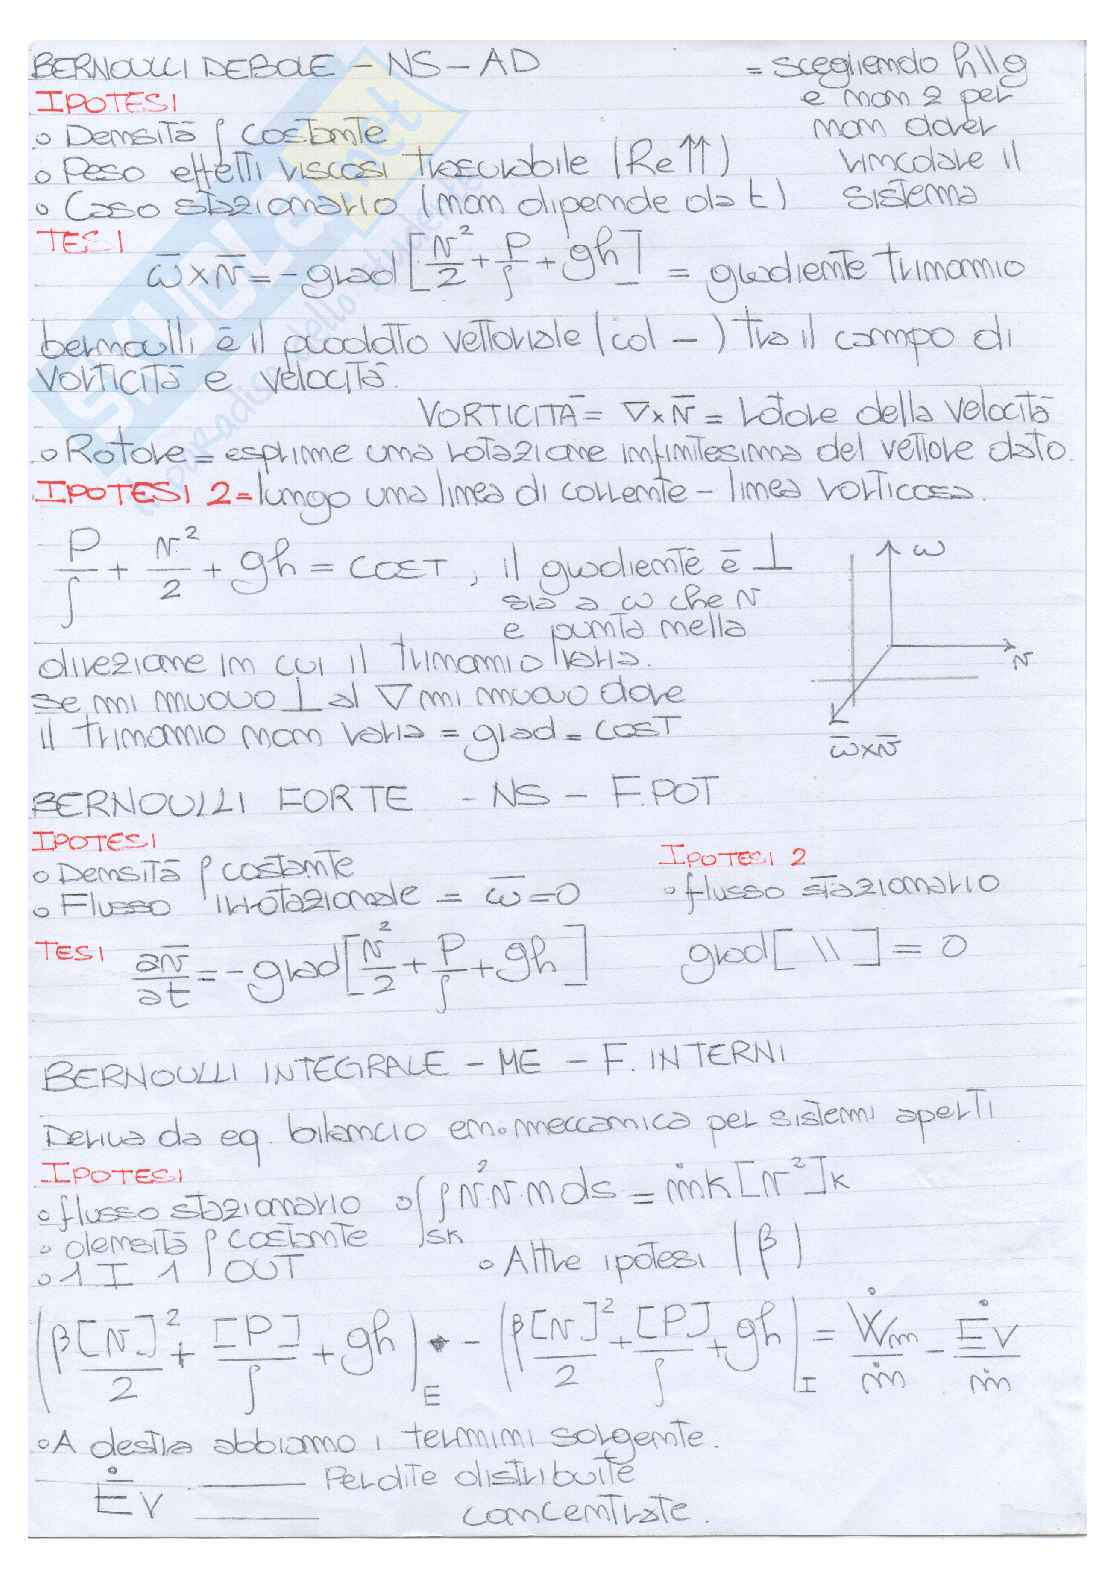 BERNOULLI DEBOLE - NS - AD
= scegliendo h||g
e non z per
non dover
vincolare il
sistema
IPOTESI
o Densità ρ costante
o Peso effetti viscosi trascurabile (Re↑↑)
o Caso stazionario (non dipende da t)
TESI
ω̅ x v̅ = -grad[v²/2 + P/ρ + gh] = gradiente trinomio
bernoulli è il prodotto vettoriale (col -) tra il campo di
vorticità e velocità.
VORTICITÀ = ∇ x v̅ = rotore della velocità
o Rotore = esprime una rotazione infinitesima del vettore dato.
IPOTESI 2 = lungo una linea di corrente - linea vorticosa.
P/ρ + v²/2 + gh = COST , il gradiente è ⊥
sia a ω che v
e punta nella
direzione in cui il trinomio varia.
se mi muovo ⊥ al ∇ mi muovo dove
il trinomio non varia = grad = COST
ω
v
ω̅ x v̅
BERNOULLI FORTE - NS - F.POT
IPOTESI
o Densità ρ costante
o Flusso irrotazionale = ω̅ = 0
IPOTESI 2
o flusso stazionario
TESI ∂v̅/∂t = -grad[v²/2 + P/ρ + gh]
grad[ \\ ] = 0
BERNOULLI INTEGRALE - ME - F. INTERNI
Deriva da eq. bilancio en. meccanica per sistemi aperti
IPOTESI
o flusso stazionario o ∫SK ρ v² v·n ds = ṁk [v²]k
o densità ρ costante
o 1 I 1 OUT
o Altre ipotesi (β)
(β[v]²/2 + [P]/ρ + gh)E - (β[v]²/2 + [P]/ρ + gh)I = Ẇm/ṁ - Ėv/ṁ
o A destra abbiamo i termini sorgente.
Ėv
Perdite distribuite
concentrate.
SKUOLA.net